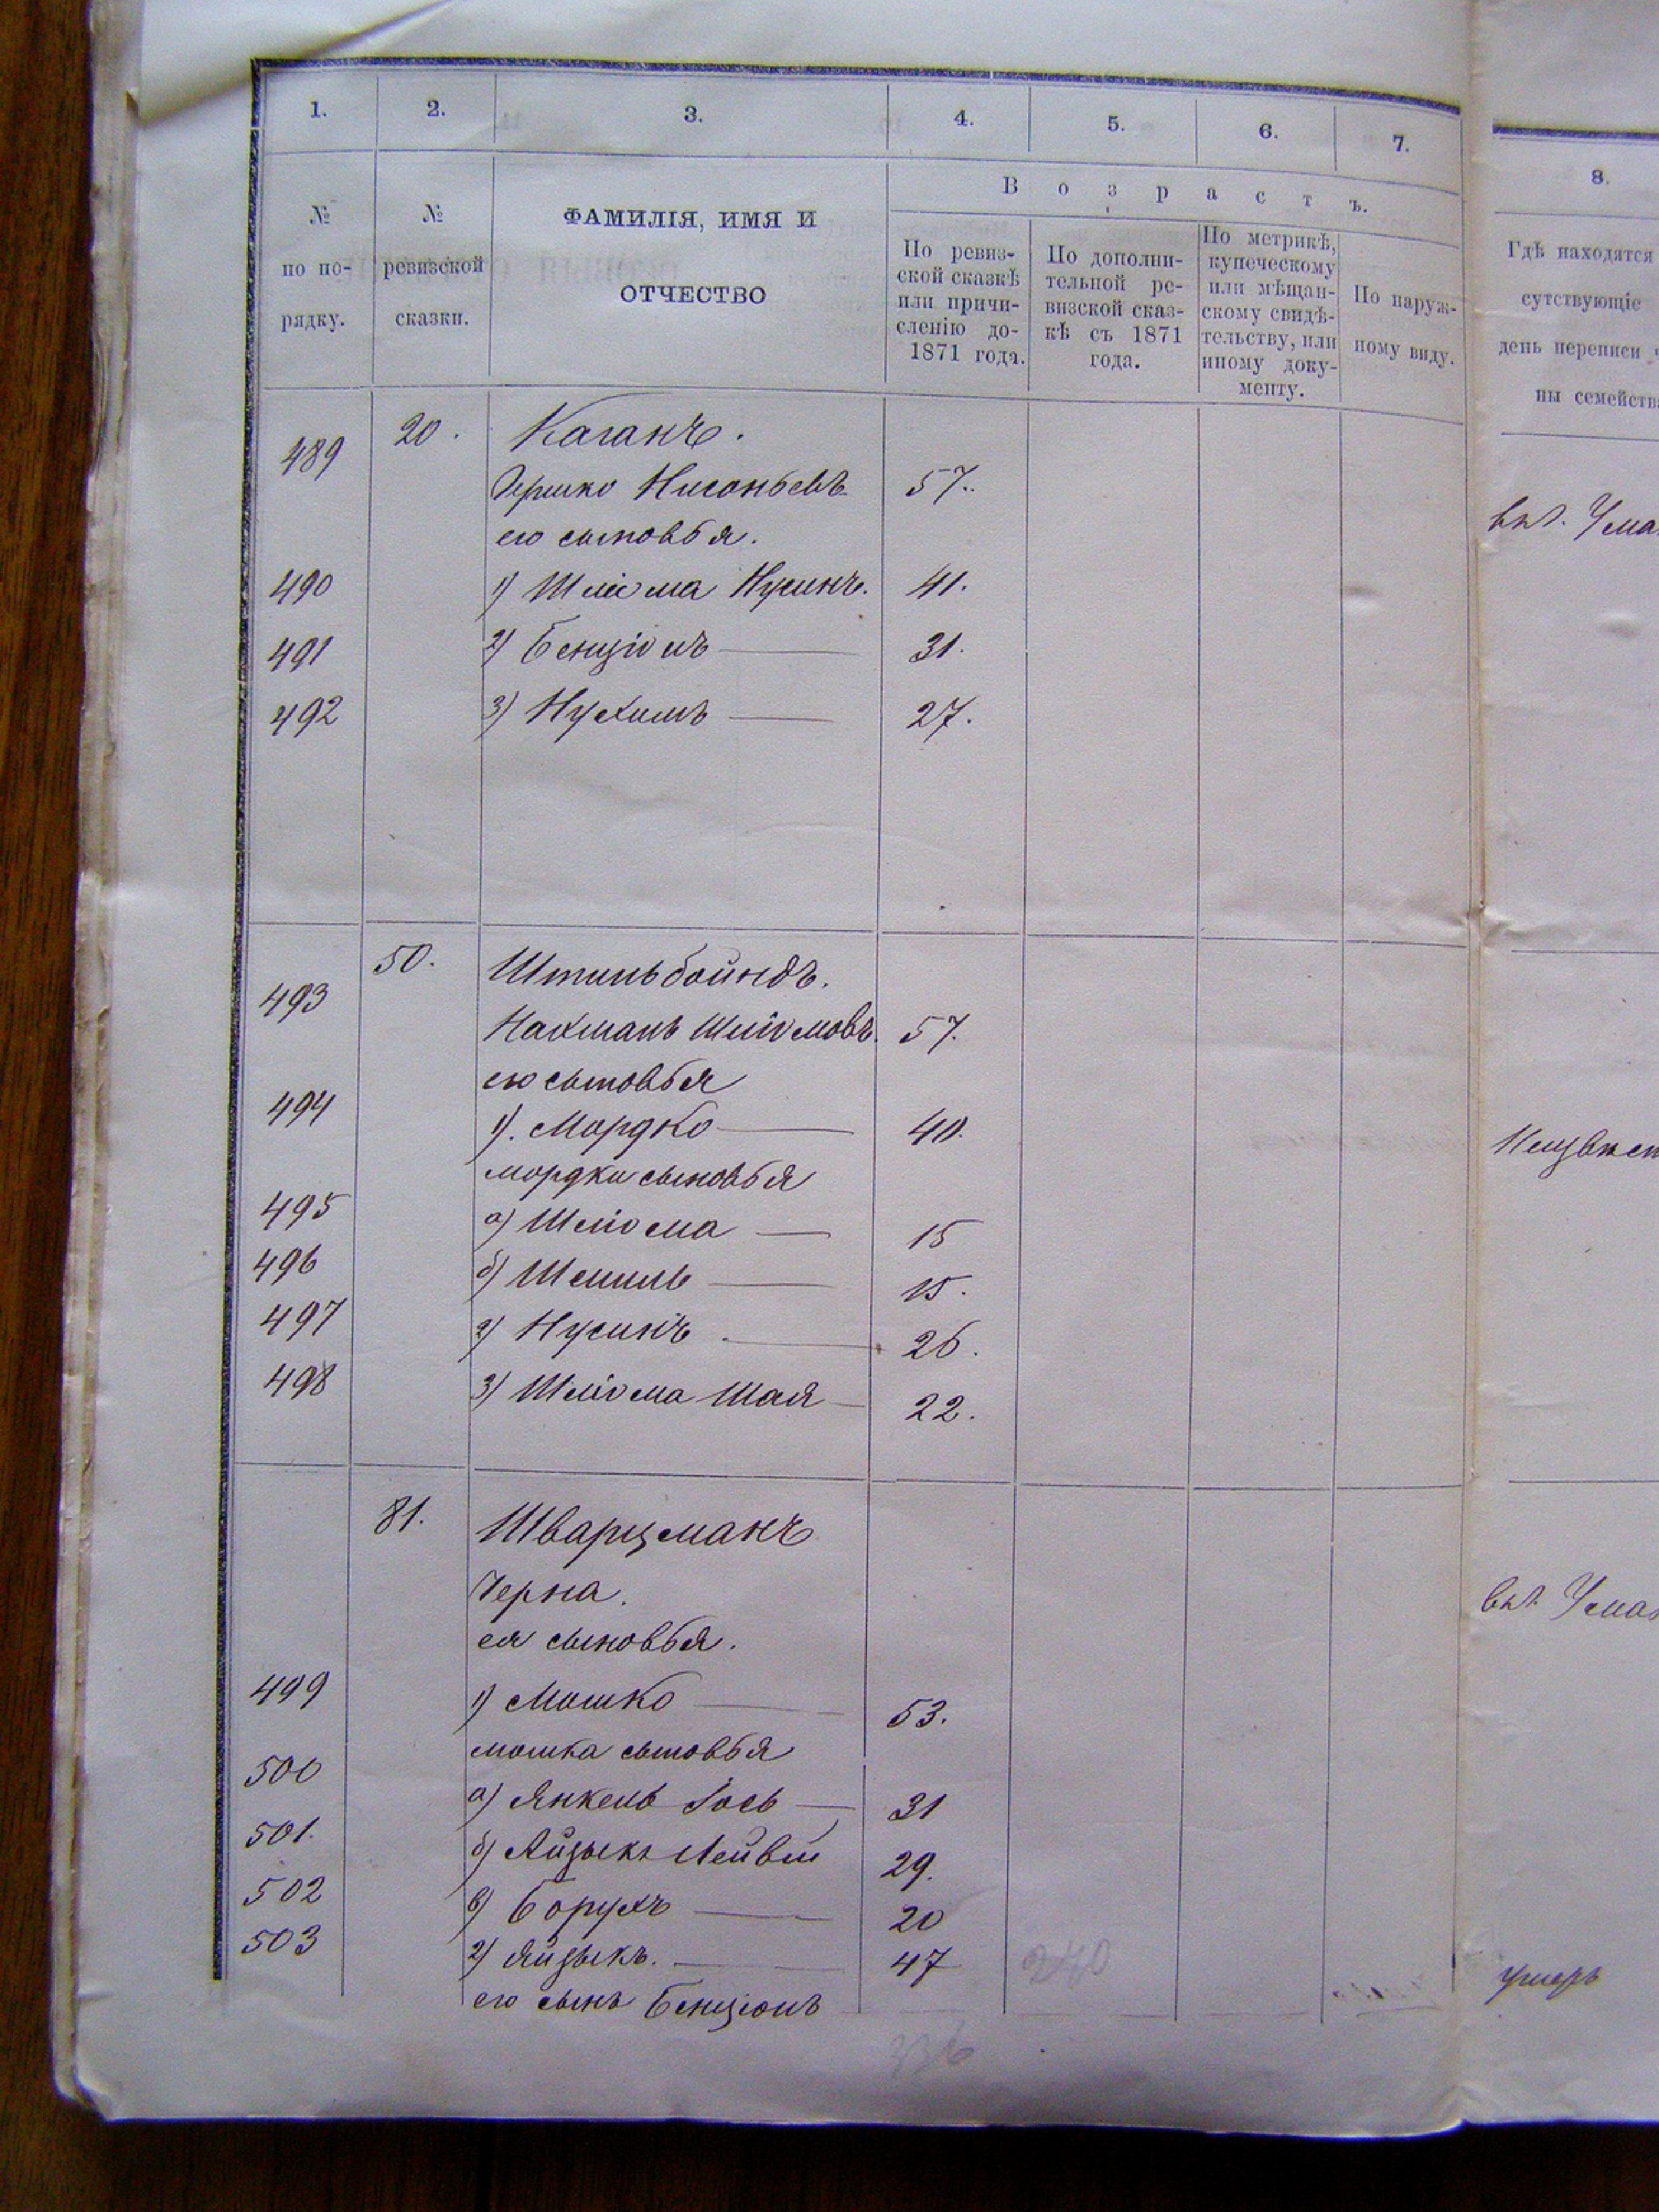 1. 2. 3. 4. 5. 6. 7.
8.
Возрастъ.
№ по порядку.
№ ревизской сказки.
ФАМИЛІЯ, ИМЯ И
ОТЧЕСТВО
По ревиз-
ской сказкѣ
или причи-
сленію до-
1871 года.
По дополни-
тельной ре-
визской сказ-
кѣ съ 1871
года.
По метрикѣ,
купеческому
или мѣщан-
скому свидѣ-
тельству, или
иному доку-
менту.
По наруж-
ному виду.
Гдѣ находятся
сутствующіе
день переписи
ны семейства
489 20. Каганъ.
Гершко Нисоньевъ 57.
его сыновья.
490 1) Шліома Нусинъ. 41.
491 2) Бенціонъ — 31.
492 3) Нухимъ — 27.
50. Штиньбойндъ.
493 Нахманъ Шліомовъ. 57.
его сыновья
494 1). Мордко — 40.
мордки сыновья
495 а) Шліома — 15
496 б) Шмиль — 15.
497 2) Нусинъ — 26.
498 3) Шліома Шая — 22.
81. Шварцманъ
Черна.
ея сыновья.
499 1) Мошко — 53.
мошка сыновья
500 а) Янкель Іось — 31
501. б) Айзыкъ Лейвы 29.
502 в) Борухъ — 20
503 2) Айзыкъ. — 47 240
его сынъ Бенціонъ
вът. Ума
вът Ума
умеръ